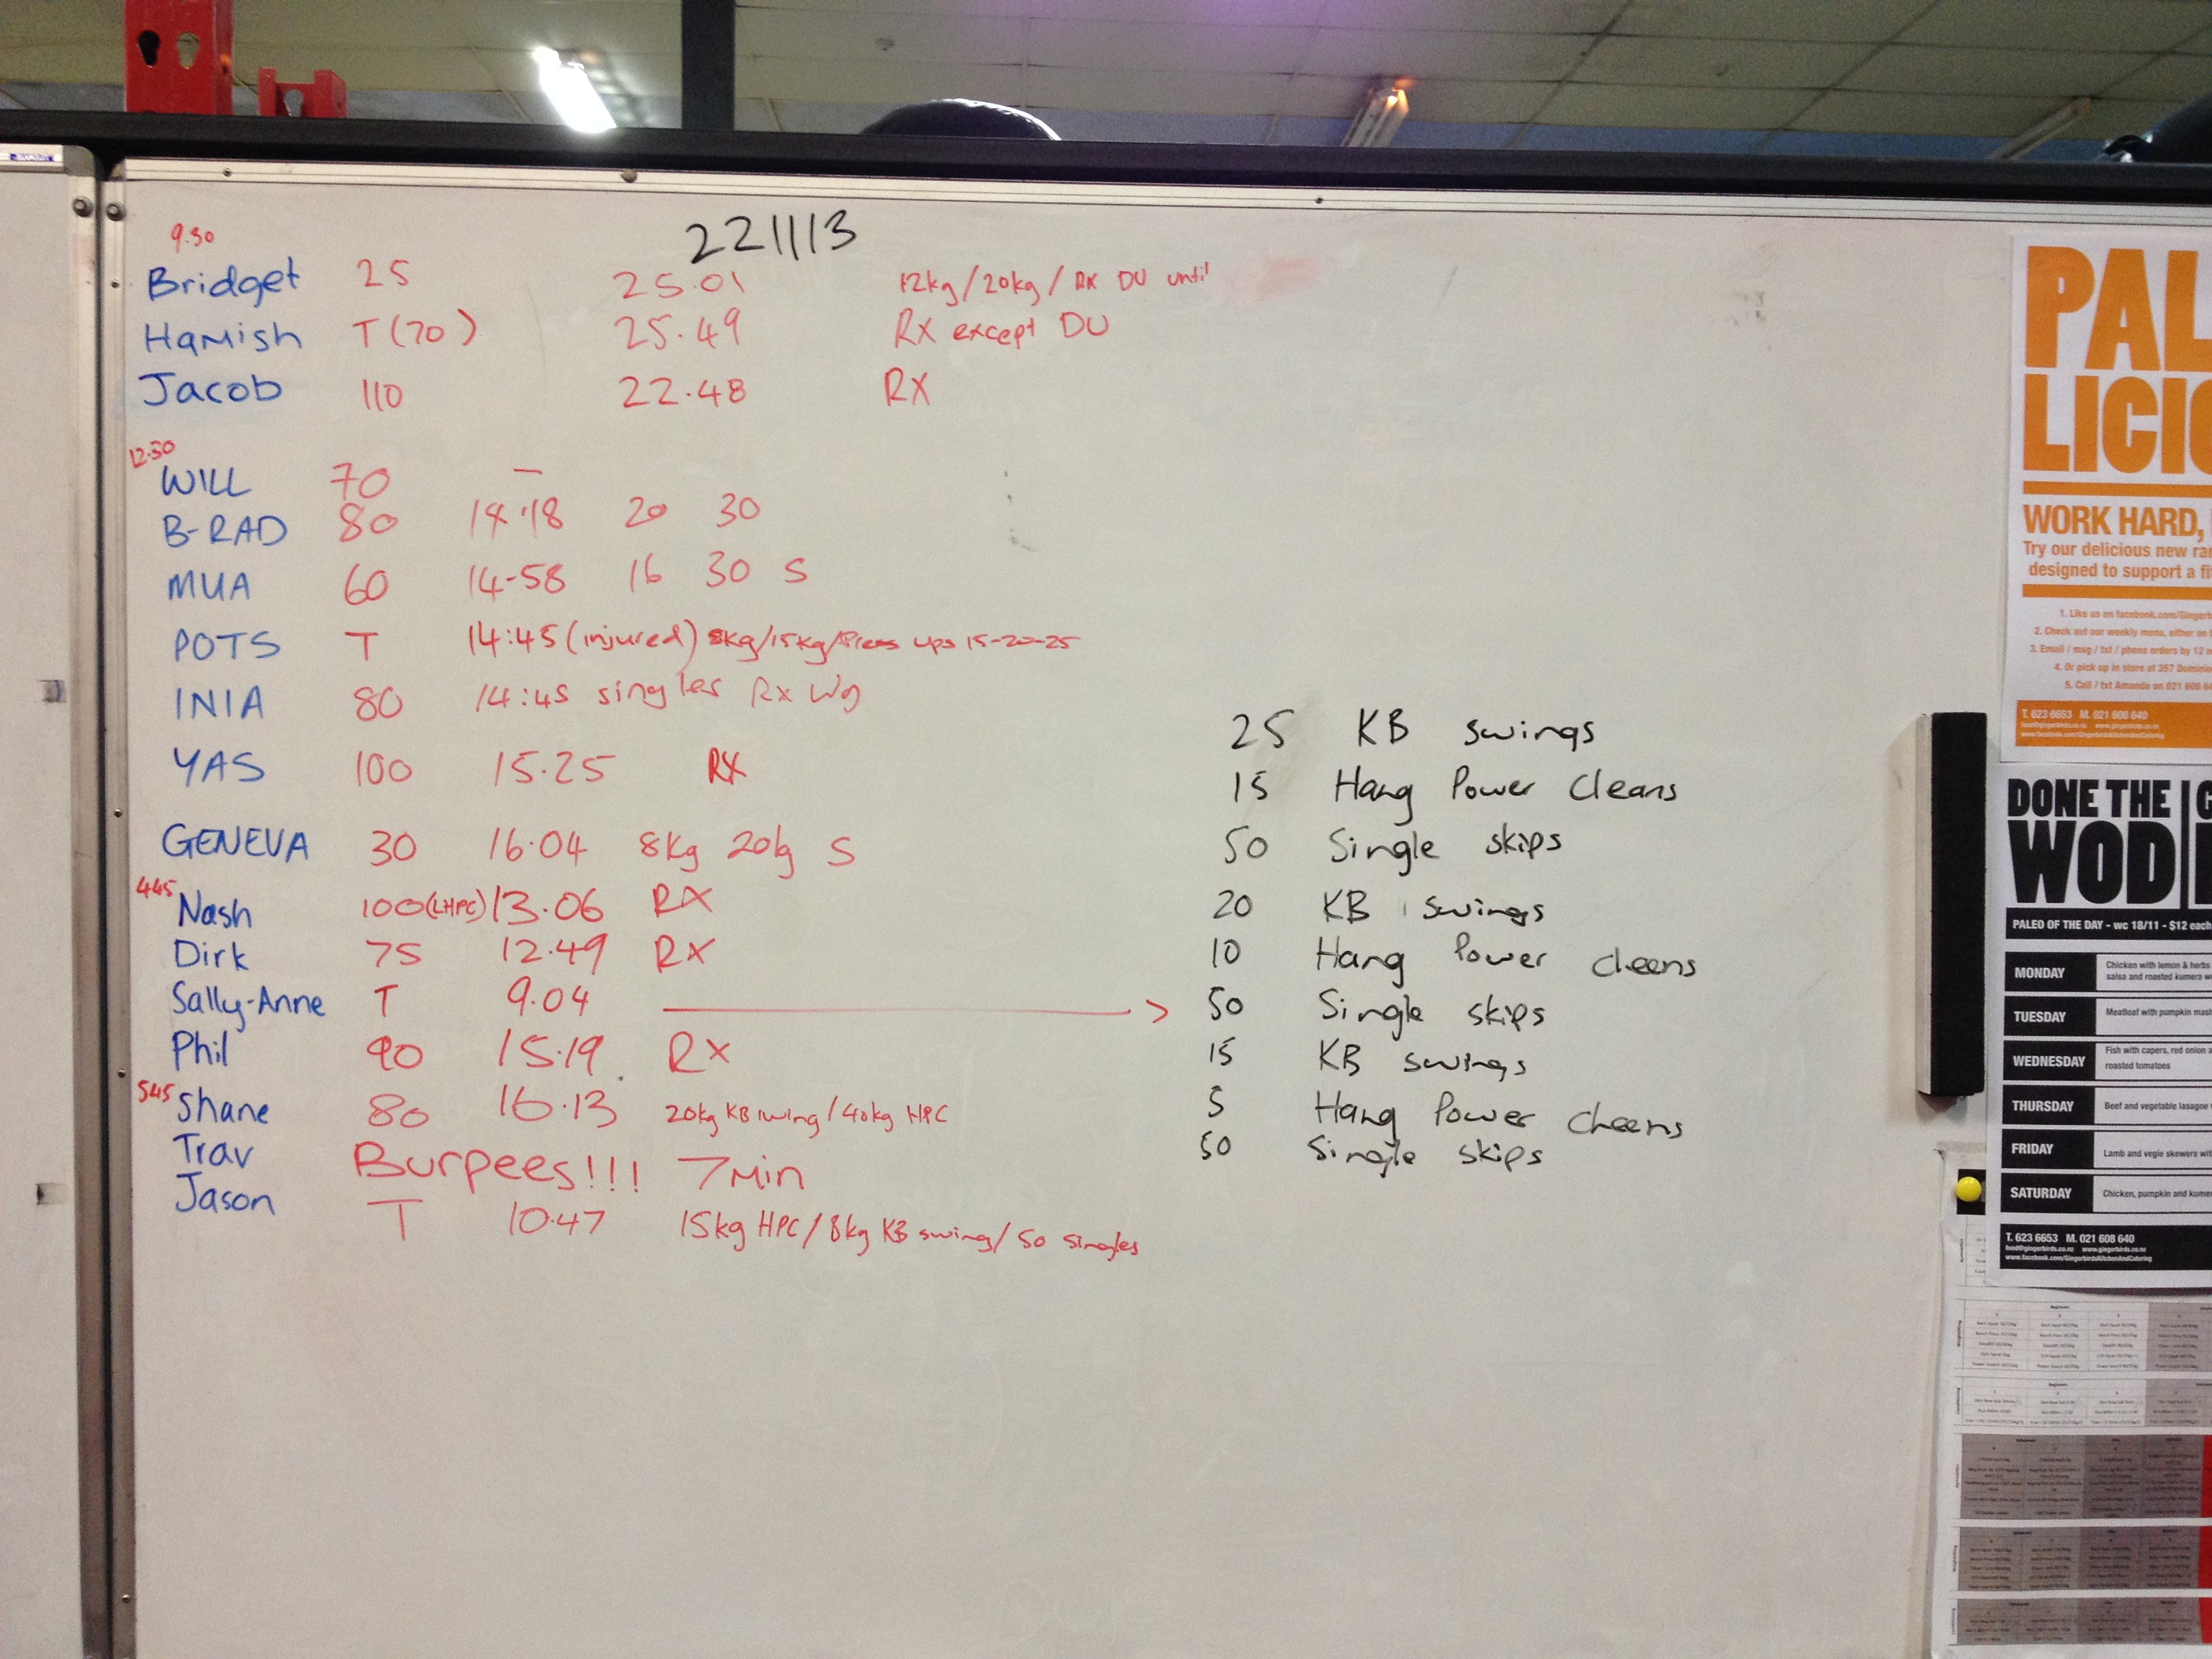 221113
9.30
Bridget 25 25.01 12kg/20kg/ RX DU until
Hamish T(70) 25.49 RX except DU
Jacob 110 22.48 RX
12.30
WILL 70 –
B-RAD 80 14.18 20 30
MUA 60 14-58 16 30 S
POTS T 14:45 (injured) 8kg/15kg/Press ups 15-20-25
INIA 80 14:45 singles Rx Wg
YAS 100 15.25 RX
GENEVA 30 16.04 8Kg 20kg S
445
Nash 100(LHPC) 13.06 RX
Dirk 75 12.49 RX
Sally-Anne T 9.04
Phil 90 15.19 RX
545
Shane 80 16.13 20kg KB swing/40kg HPC
Trav Burpees!!! 7 Min
Jason T 10.47 15kg HPC/8kg KB swing/50 singles
25 KB swings
15 Hang Power Cleans
50 Single skips
20 KB swings
10 Hang Power cleans
50 Single skips
15 KB swings
5 Hang Power cleans
50 Single skips
PAL
LICIO
WORK HARD,
Try our delicious new ra
designed to support a fi
1. Like us on facebook.com/Gingerb
2. Check out our weekly menu, either on
3. Email / msg / txt / phone orders by 12
4. Or pick up in store at 357 Dominio
5. Call / txt Amanda on 021 608 64
T. 623 6653 M. 021 608 640
DONE THE
WOD
PALEO OF THE DAY - wc 18/11 - $12 each
MONDAY Chicken with lemon & herbs
salsa and roasted kumera w
TUESDAY Meatloaf with pumpkin mas
WEDNESDAY Fish with capers, red onion
roasted tomatoes
THURSDAY Beef and vegetable lasagne
FRIDAY Lamb and vegie skewers wit
SATURDAY Chicken, pumpkin and kume
T. 623 6653 M. 021 608 640
food@gingerbirds.co.nz www.gingerbirds.co.nz
www.facebook.com/GingerbirdsKitchenAndCatering